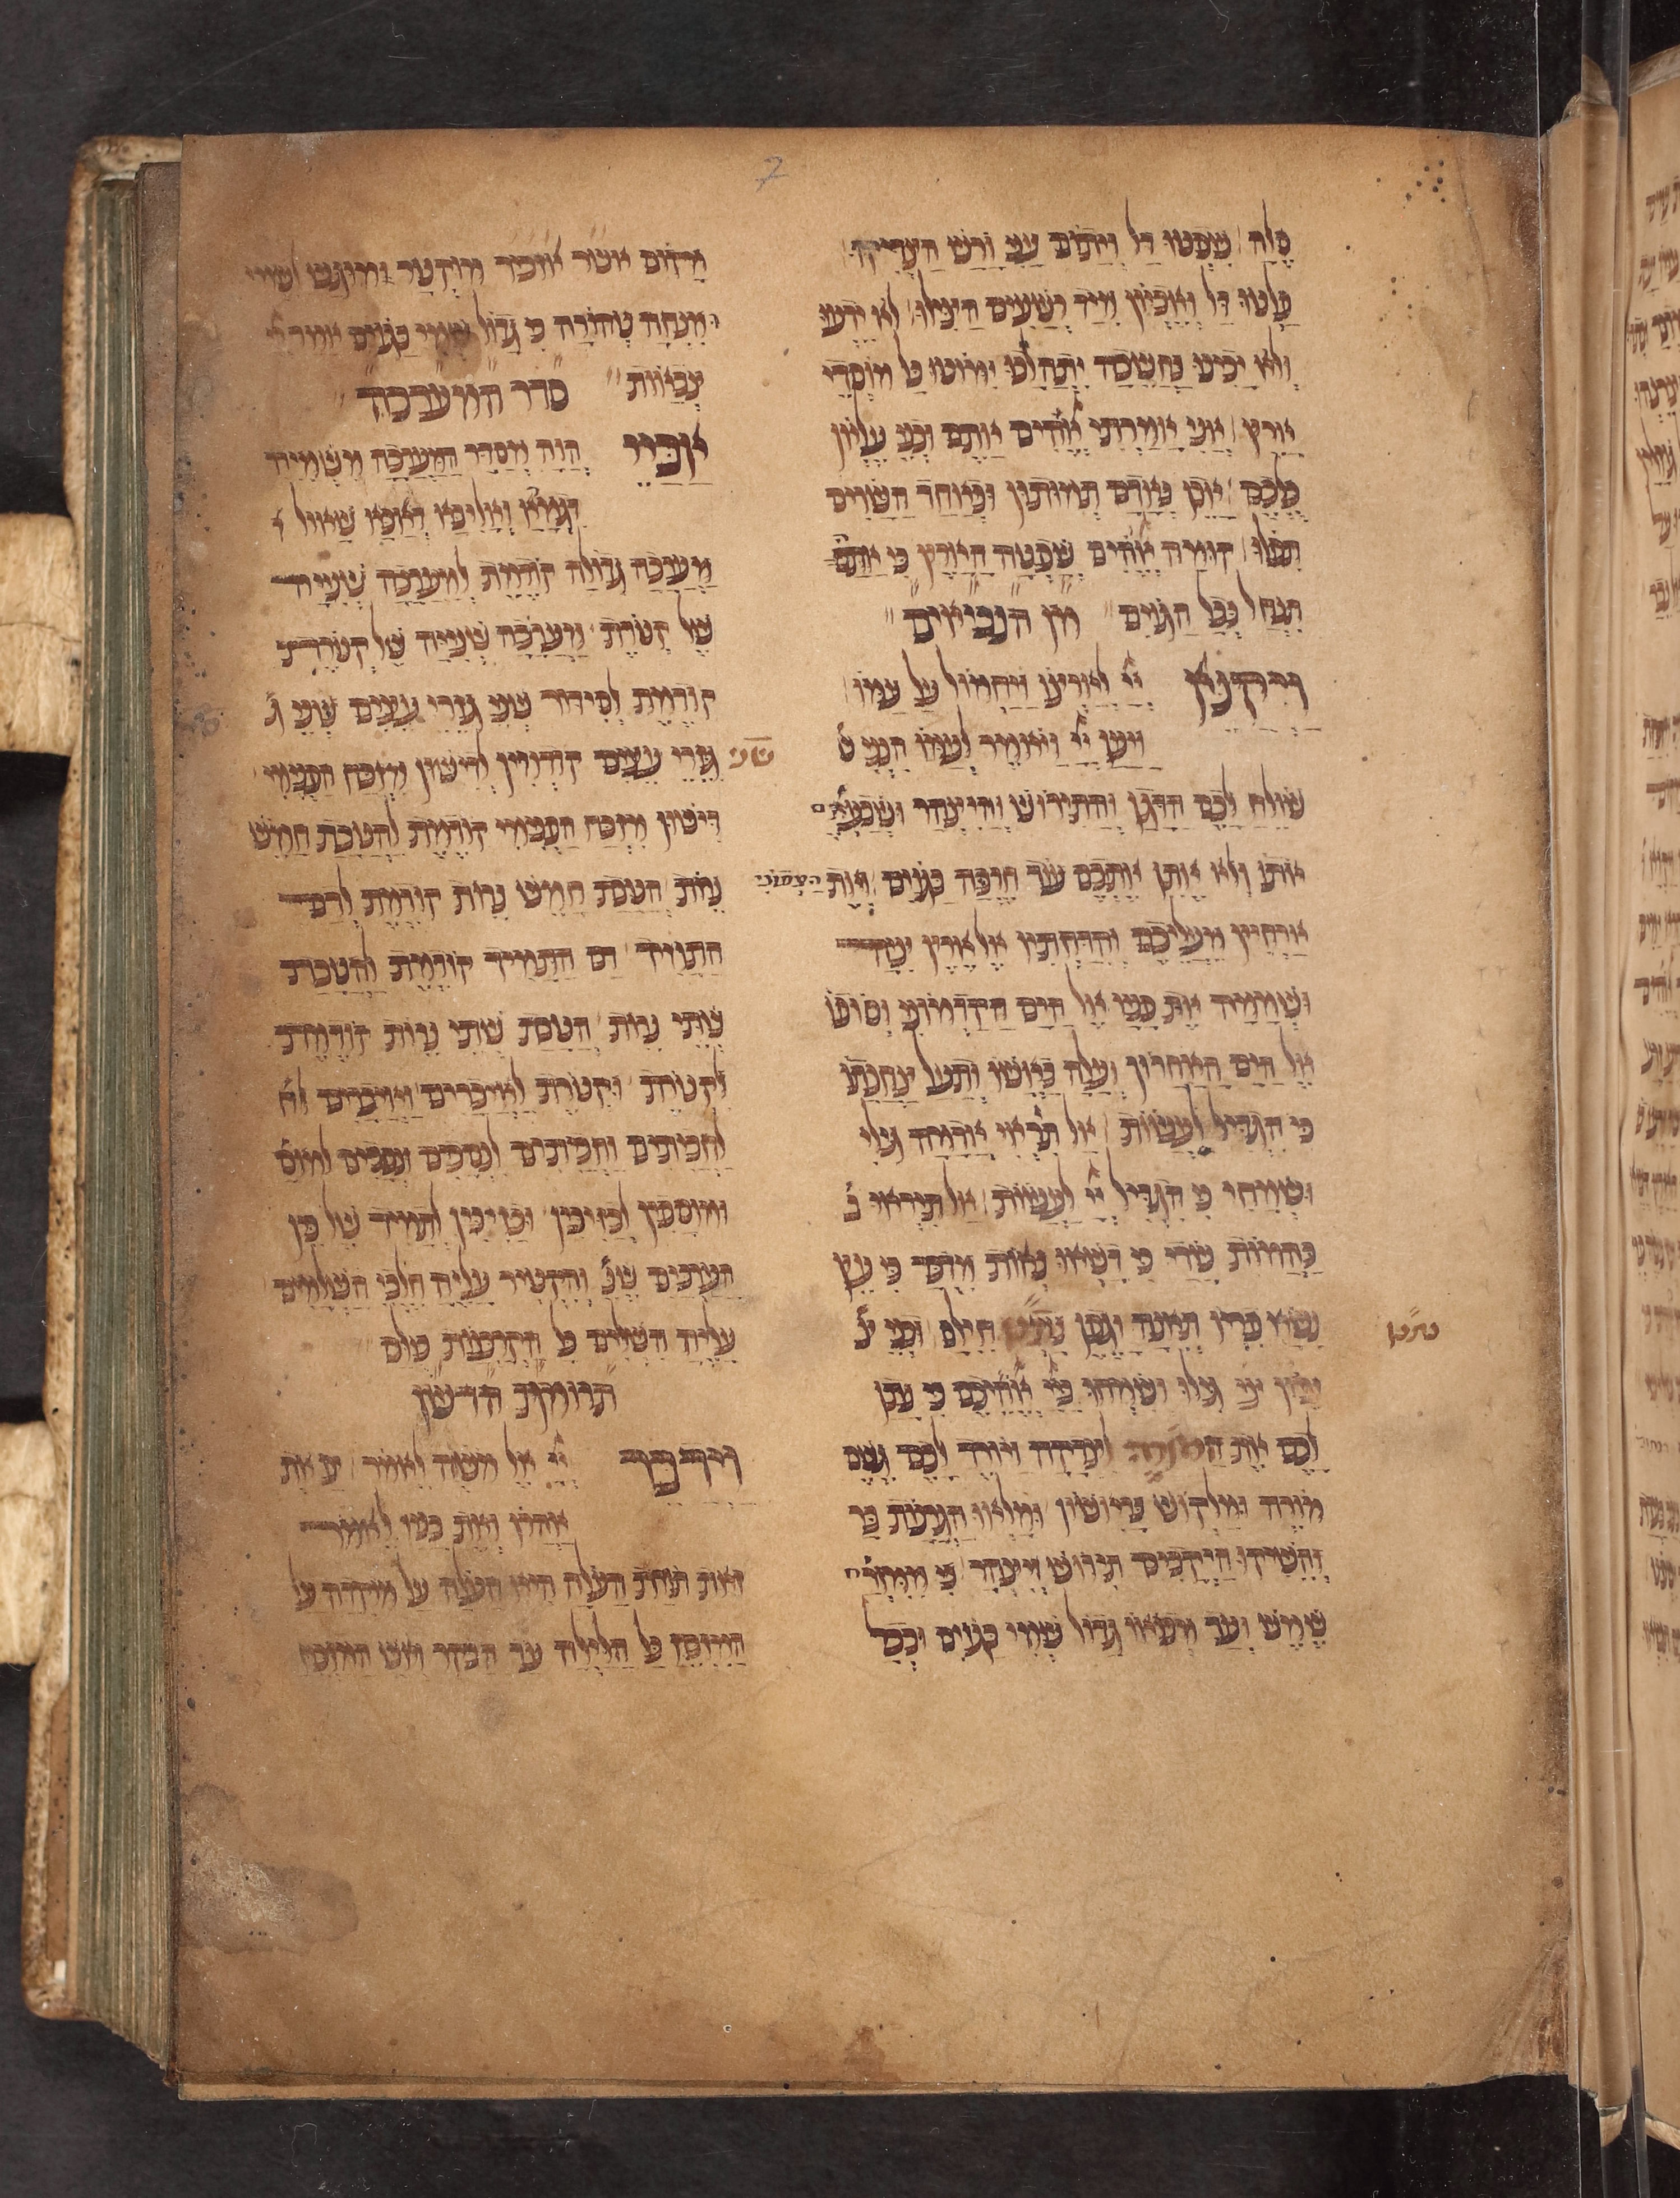 7
סלה שפטו דל ויתום עני ורש הצדיקו
פלטו דל ואביון מיד רשעים הצילו לא ידעו
ולא יבינו בחשכה יתהלכו ימוטו כל מוסדי
ארץ אני אמרתי אלהים אתם ובני עליון
כלכם אכן כאדם תמותון וכאחד השרים
תפלו קומה אלהים שפטה הארץ כי אתה
תנחל בכל הגוים מן הנביאים
ויקנא
יי לארצו ויחמול על עמו
ויען יי ויאמר לעמו הנני ש
שולח לכם הדגן והתירוש והיצהר ושבעתם
אותו ולא אתן אתכם עוד חרפה בגוים ואת הצפוני
ארחיק מעליכם והדחתיו אל ארץ ציה
ושממה את פניו אל הים הקדמוני וסופו
אל הים האחרון ועלה באושו ותעל צחנתו
כי הגדיל לעשות אל תראי אדמה גילי
ושמחי כי הגדיל יי לעשות אל תיראו ב
בהמות שדי כי דשאו נאות מדבר כי עץ
נשא פריו תאנה וגפן נתנו חילם ובני צ
ציון גילו ושמחו ביי אלהיכם כי נתן
לכם את המורה לצדקה ויורד לכם גשם
מורה ומלקוש בראשון ומלאו הגרנות בר
והשיקו היקבים תירוש ויצהר כי ממזרח
שמש ועד מבואו גדול שמי בגוים ובכל
נתנו
מקום אשר אזכיר מוקטר ומוגש לשמי
ומנחה טהורה כי גדול שמי בגוים אמר יי
צבאות סדר המערכה
אביי
הוה מסדר המערכה משמיה
דגמרא ואליבא דאבא שאול
מערכה גדולה קודמת למערכה שנייה
של קטרת ומערכה שנייה של קטורת
קודמת לסידור שני גזרי עצים שני ג
גזרי עצים קודמין לדישון מזבח הפנימי
דישון מזבח הפנימי קודמת להטבת חמש
נרות הטבת חמש נרות קודמת לדם
התמיד דם התמיד קודמת להטבת
שתי נרות הטבת שתי נרות קודמת
לקטרת וקטרת לאיברים ואיברים למ
לחביתים וחביתים לנסכים ונסכים למוס
ומוספין לבזיכין ובזיכין לתמיד של בין
הערבים שנ והקטיר עליה חלבי השלמים
עליה השלים כל הקרבנות כולם
תרומת הדשן
וידבר
יי אל משה לאמר צו את
אהרן ואת בניו לאמר
זאת תורת העלה היא העלה על מוקדה על
המזבח כל הלילה עד הבקר ואש המזבח
שני